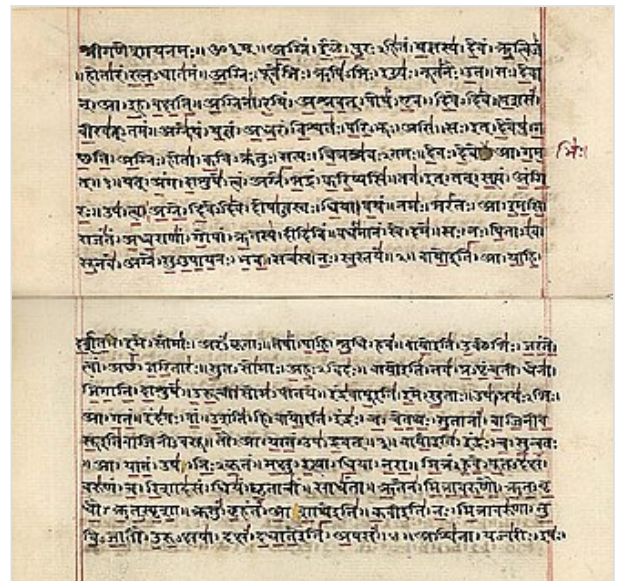 श्रीगणेशायनमः॥ॐ३म्॥अग्निं।ईळे।पुरःऽहितं।यज्ञस्य।देवं।ऋत्विजं
॥होतारं।रत्नऽधातमं॥अग्निः।पूर्वेभिः।ऋषिऽभिः।ईड्यः।नूतनैः।उत॥सः।देवा
न्।आ।इह।वक्षति॥अग्निना।रयिं।अश्नवत्।पोषं।एव।दिवेऽदिवे॥यशसं
वीरवत्ऽतमं॥अग्ने।यं।यज्ञं।अध्वरं।विश्वतः।परिऽभूः।असि॥सः।इत्।देवेषु।ग
च्छति॥अग्निः।होता।कविऽक्रतुः।सत्यः।चित्रश्रवःऽतमः॥देवः।देवे।आ।गम
भिः।
त्॥१॥यत्।अंग।दाशुषे।त्वं।अग्ने।भद्रं।करिष्यसि॥तव।इत्।तत्।सत्यं।अंगि
रः॥उप।त्वा।अग्ने।दिवेऽदिवे।दोषाऽवस्तः।धिया।वयं॥नमः।भरंतः।आ।इमसि॥
राजंतं।अध्वराणां।गोपां।ऋतस्य।दीदिविं॥वर्धमानं।स्वे।दमे॥सः।नः।पिताऽइव
सूनवे।अग्ने।सुऽउपायनः।भव॥सचस्व।नः।स्वस्तये॥२॥वायोइति।आ।याहि।
दर्शत।इमे।सोमाः।अरंऽकृताः॥तेषां।पाहि।श्रुधि।हवं॥वायोइति।उक्थेभिः।जरंते।
त्वां।अच्छ।जरितारः॥सुतऽसोमाः।अहःऽविदः॥वायोइति।तव।प्रऽपृंचती।धेना।
जिगाति।दाशुषे॥उरूची।सोमऽपीतये॥इंद्रवायूइति।इमे।सुताः॥उप।प्रयःऽभिः।
आ।गतं॥इंदवः।वां।उशंति।हि॥वायोइति।इंद्रः।च।चेतथः।सुतानां।वाजिनीव
सूइतिवाजिनीऽवसू॥तौ।आ।यातं।उप।द्रवत्॥३॥वायोइति।इंद्रः।च।सुन्वतः
॥आ।यातं।उप।निःऽकृतं॥मक्षु।इत्था।धिया।नरा॥मित्रं।हुवे।पूतऽदक्षं।
वरुणं।च।रिशादसं॥धियं।घृताचीं।साधंता॥ऋतेन।मित्रावरुणौ।ऋतऽवृ
धौ।ऋतऽस्पृशा॥क्रतुं।बृहंतं।आशाथेइति॥कवीइति।नः।मित्रावरुणा।तु
विऽजातौ।उरुऽक्षया॥दक्षं।दधातेइति।अपसं॥४॥अश्विना।यज्वरीः।इषः।